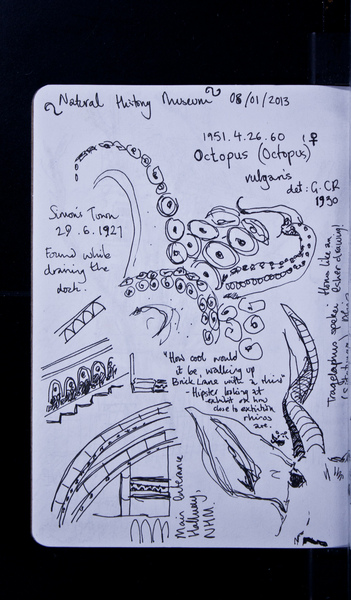 Natural History Museum 08/01/2013
1951.4.26.60 1♀
Octopus (Octopus)
vulgaris
det: G.CR
1930
Simon's Town
29.6.1927
Found while
draining the
dock.
"How cool would
it be, walking up
Brick Lane with a rhino"
- Hipster looking at
exhibit on how
close to extinction
rhinos
are.
Main Entrance
Hallway,
NHM.
Tragelaphus spekei Horn like an
Escher drawing!